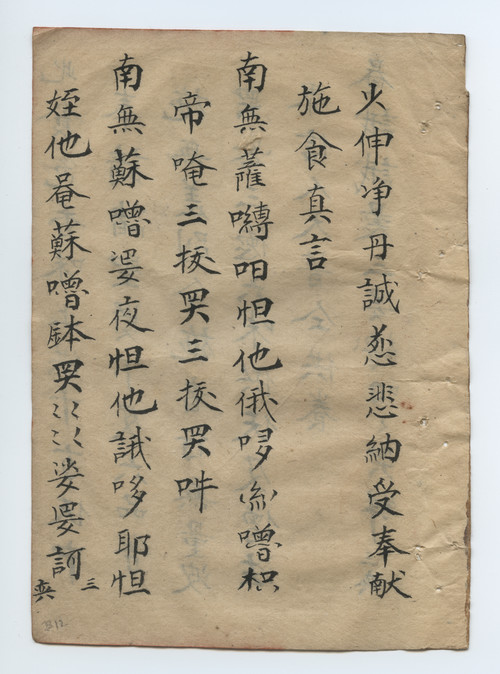 少伸净丹誠慈悲納受奉献
施食真言
南無薩嚩呾怛他俄哆嚕枳
帝唵三拔罗三拔罗吽
南無蘇嚕婆夜怛他誐哆耶怛
姪他菴蘇嚕鉢罗〻〻〻娑婆訶 三